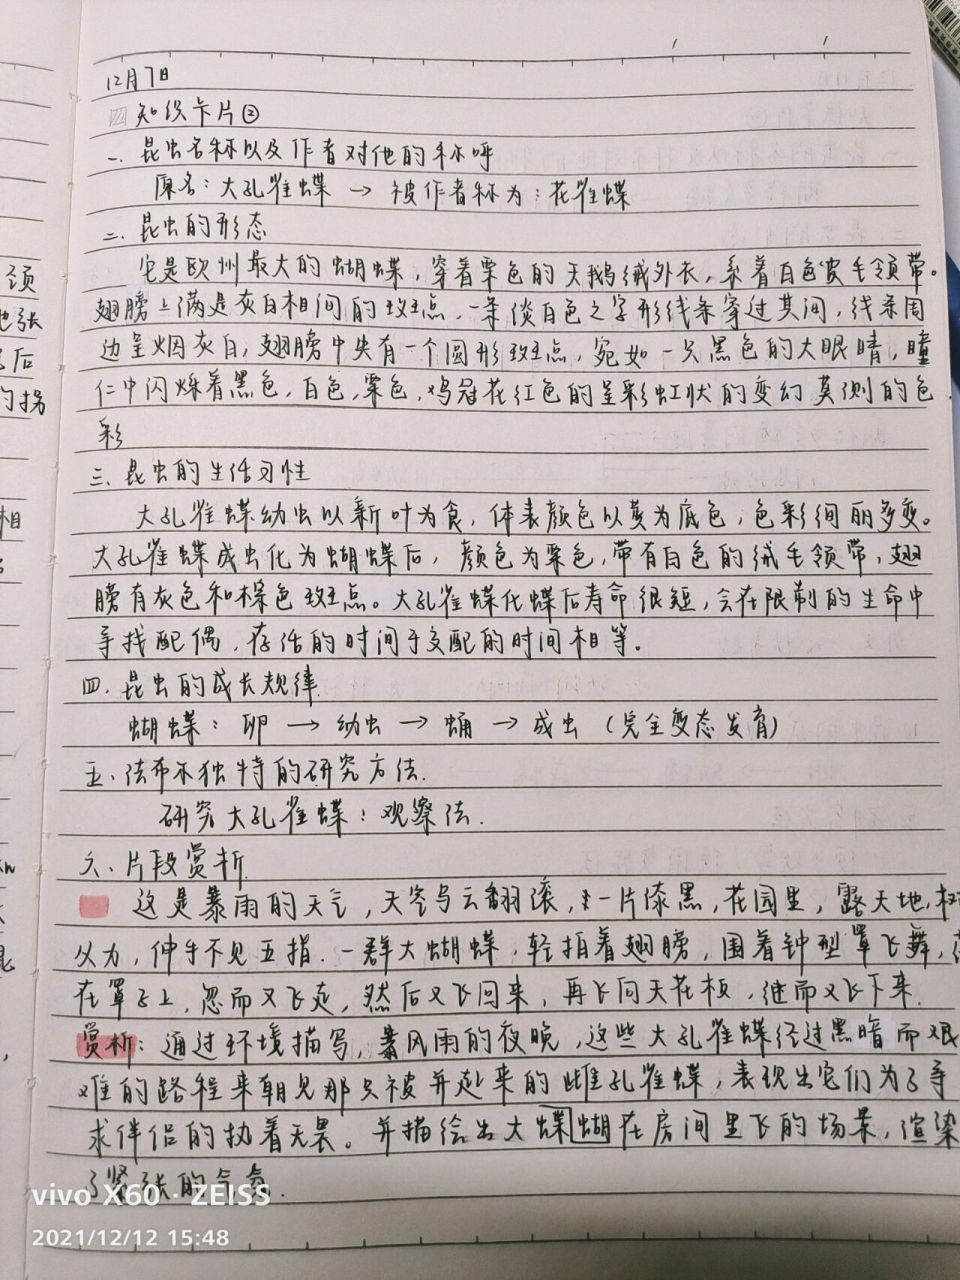 12月7日
四 知识卡片②
一、昆虫名称以及作者对他的称呼
原名：大孔雀蝶 → 被作者称为：花雀蝶
二、昆虫的形态
它是欧州最大的蝴蝶，穿着栗色的天鹅绒外衣，系着白色皮毛领带。
翅膀上满是灰白相间的斑点，一条淡白色之字形线条穿过其间，线条周
边呈烟灰白，翅膀中央有一个圆形斑点，宛如一只黑色的大眼睛，瞳
仁中闪烁着黑色，白色，栗色，鸡冠花红色的呈彩虹状的变幻莫测的色
彩
三、昆虫的生活习性
大孔雀蝶幼虫以新叶为食，体表颜色以黄为底色，色彩绚丽多变。
大孔雀蝶成虫化为蝴蝶后，颜色为栗色，带有白色的绒毛领带，翅
膀有灰色和棕色斑点。大孔雀蝶化蝶后寿命很短，会在限制的生命中
寻找配偶，存活的时间于交配的时间相等。
四、昆虫的成长规律
蝴蝶：卵 → 幼虫 → 蛹 → 成虫（完全变态发育）
五、法布尔独特的研究方法.
研究大孔雀蝶：观察法.
六、片段赏析
这是暴雨的天气，天空乌云翻滚，一片漆黑，花园里，露天地，树
从为，伸手不见五指．一群大蝴蝶，轻拍着翅膀，围着钟型罩飞舞，
在罩子上，忽而又飞走，然后又飞回来，再飞向天花板，继而又飞下来.
赏析：通过环境描写，暴风雨的夜晚，这些大孔雀蝶经过黑暗而艰
难的路程来朝见那只被并起来的雌孔雀蝶，表现出它们为了寻
求伴侣的执着无畏。并描绘出大蝶蝴在房间里飞的场景，渲染
了紧张的气氛.
vivo X60 · ZEISS
2021/12/12 15:48